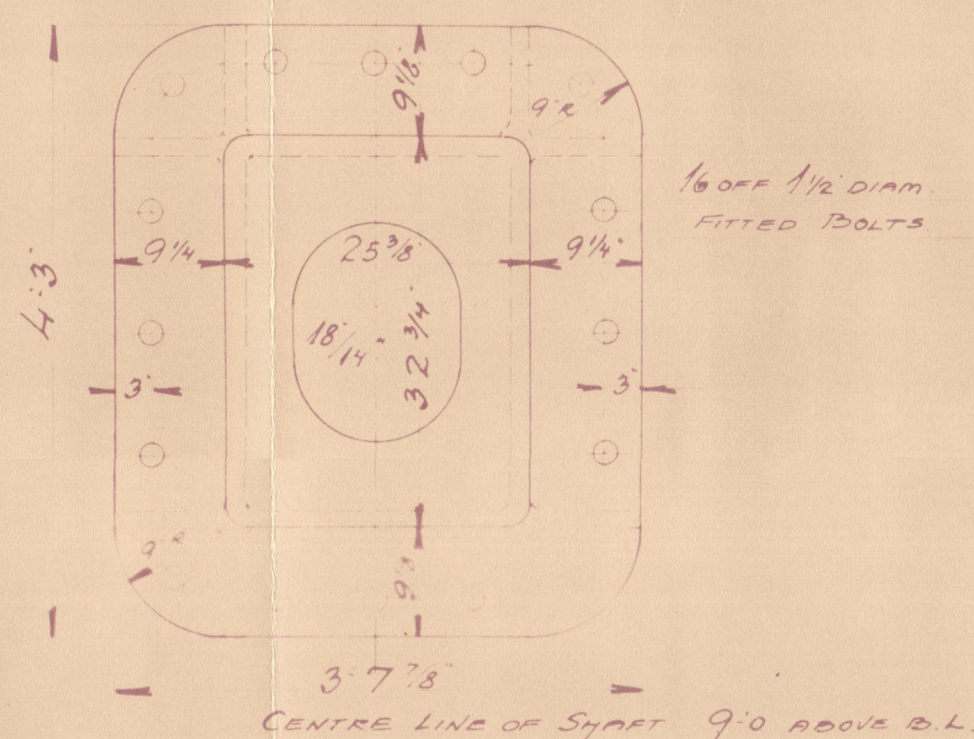 9 1/8"
9" R
16 OFF 1 1/2" DIAM.
FITTED BOLTS
9 1/4
25 3/8"
9 1/4"
4'.3"
18"/14"
32 3/4"
3"
3"
9" R
3'.7 7/8"
CENTRE LINE OF SHAFT 9'.0 ABOVE B.L